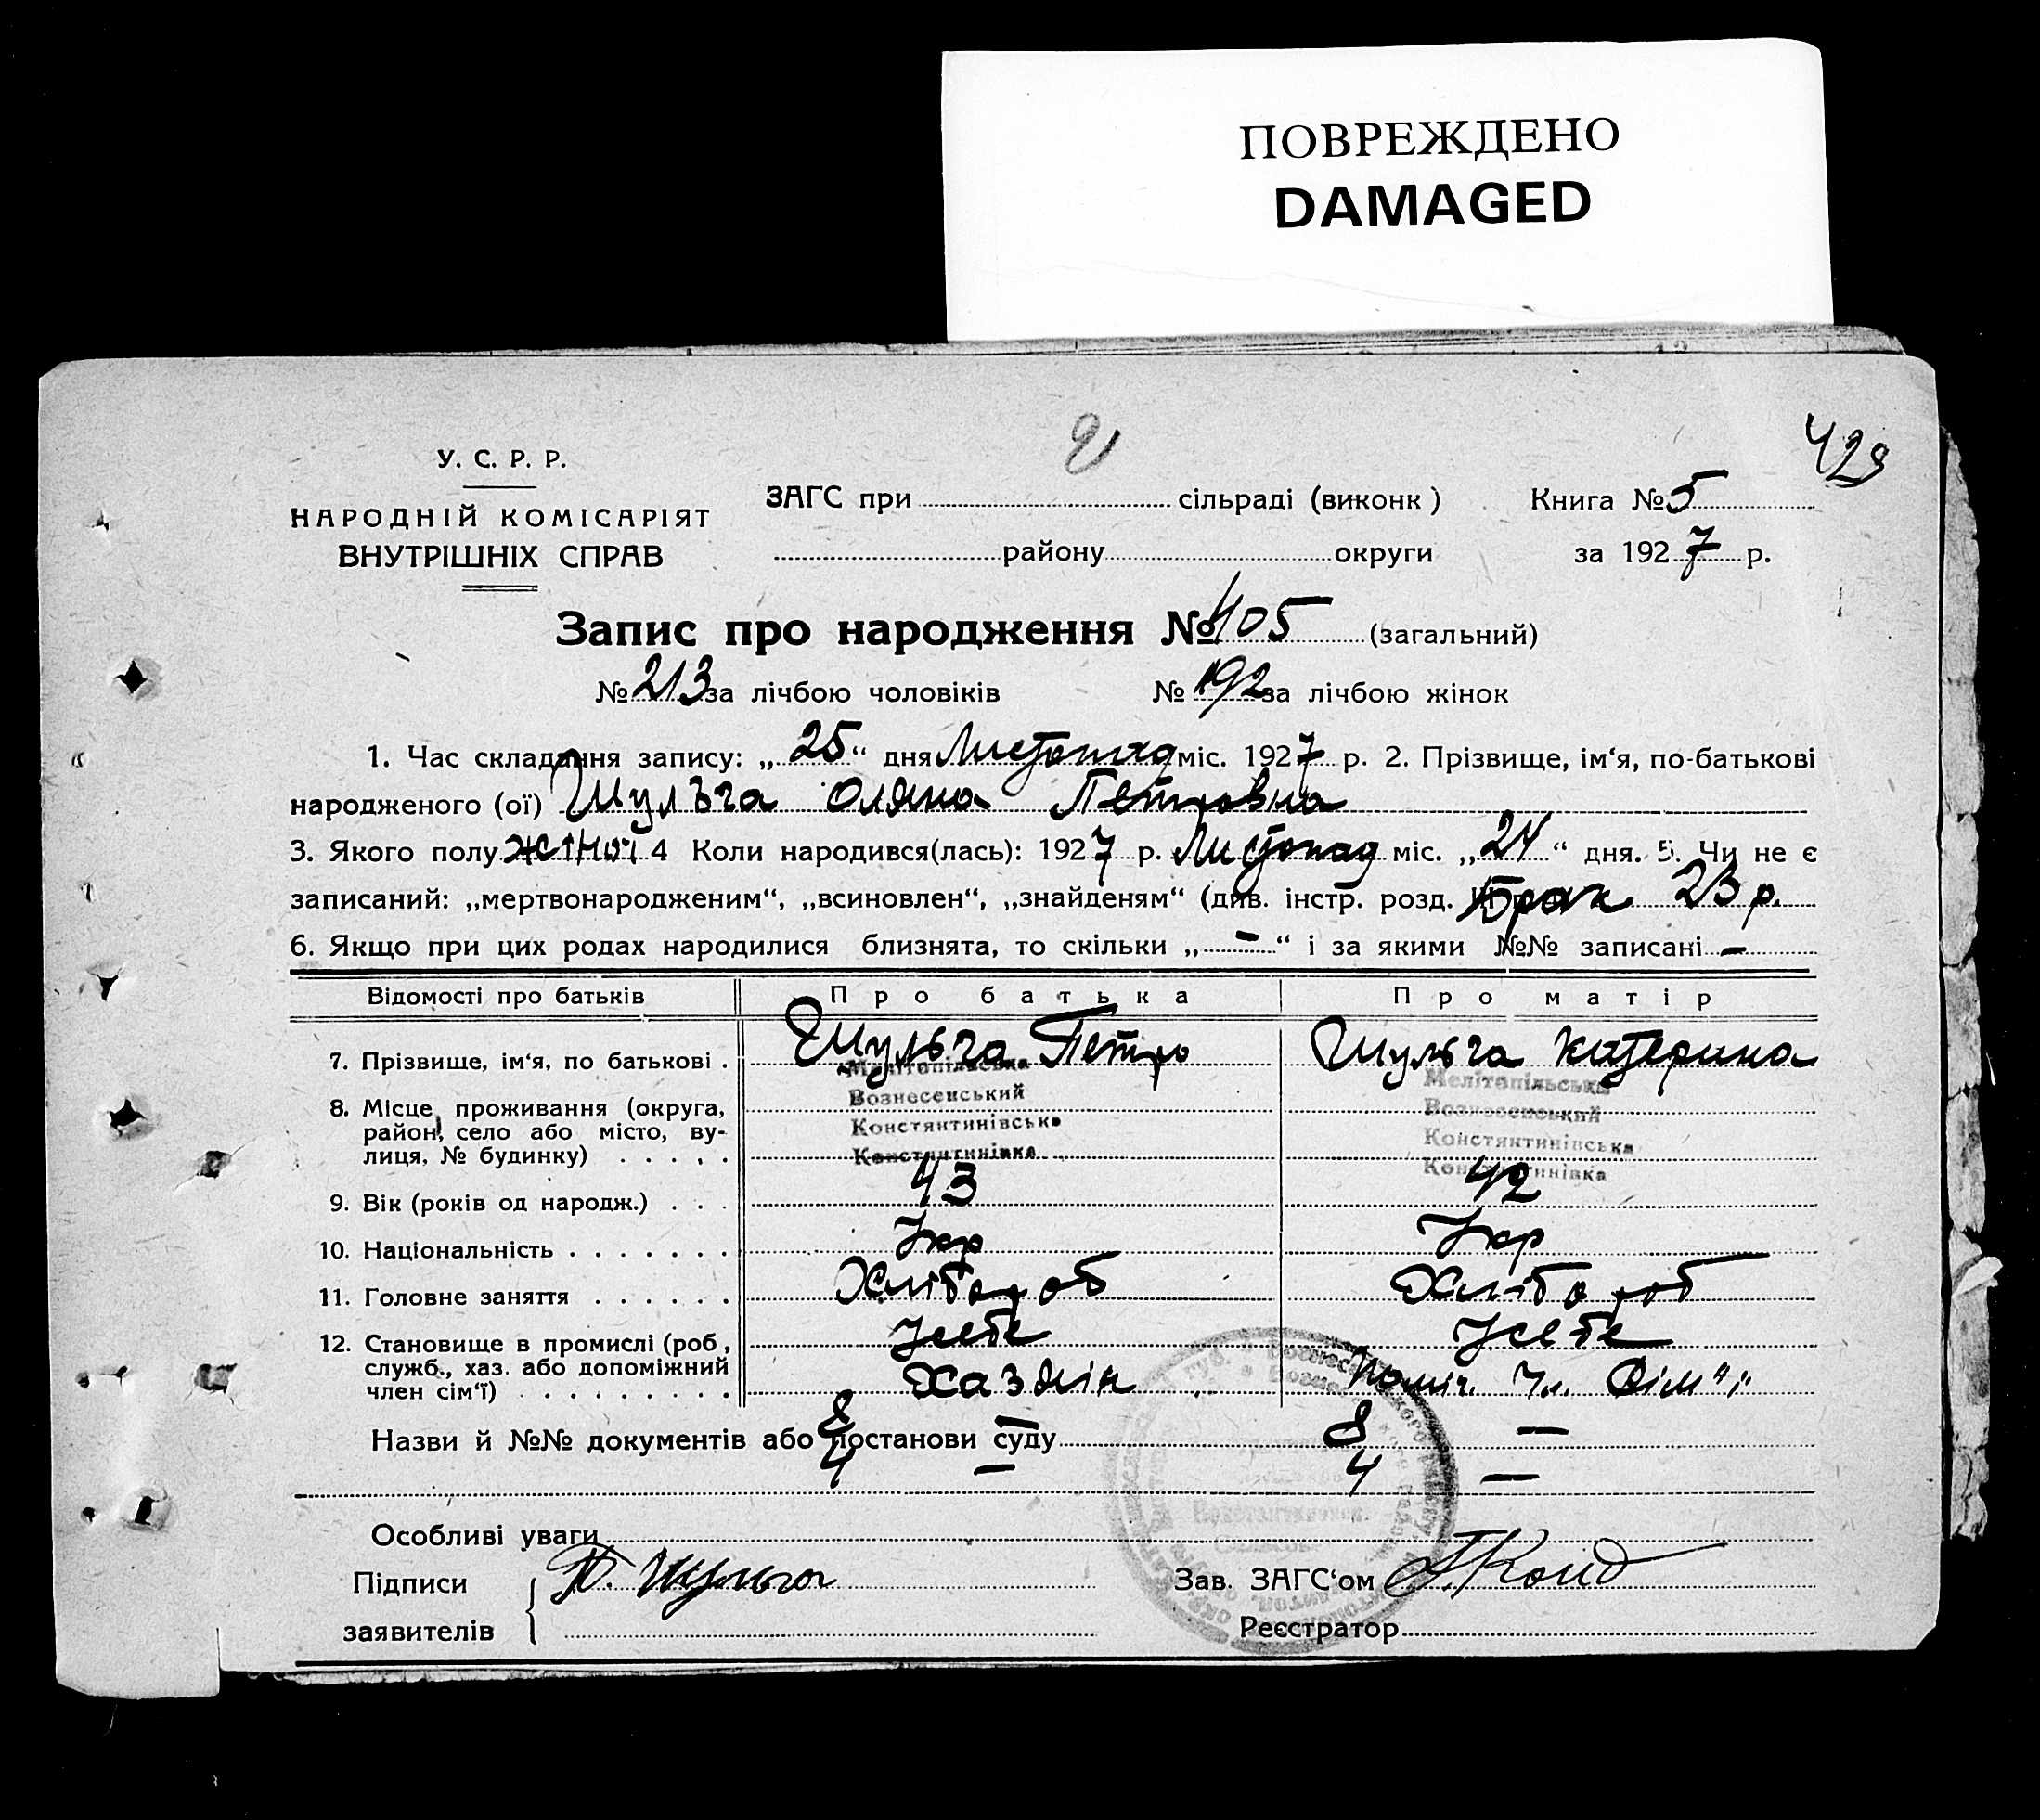 ПОВРЕЖДЕНО
DAMAGED
429
У. С. Р. Р.
НАРОДНІЙ КОМІСАРІЯТ
ВНУТРІШНІХ СПРАВ
ЗАГС при сільраді (виконк )
району округи
Книга № 5
за 1927 р.
Запис про народження № 405 (загальний)
№ 213 за лічбою чоловіків № 192 за лічбою жінок
1. Час складання запису: „25“ дня Листопад міс. 1927 р. 2. Прізвище, ім‘я, по-батькові
народженого (ої) Шульга Оляна Петровна
3. Якого полу жіночі 4 Коли народився(лась): 1927 р. Листопад міс. „24“ дня. 5. Чи не є
записаний: „мертвонародженим“, „всиновлен“, „знайденям“ (див. інстр. розд. Брак 23 р.
6. Якщо при цих родах народилися близнята, то скільки „-“ і за якими №№ записані -
Відомості про батьків Про батька Про матір
7. Прізвище, ім‘я, по батькові . Шульга Петро Шульга Катерина
8. Місце проживання (округа, район, село або місто, ву-
лиця, № будинку) . . . . .
Мелітопільська Мелітопільська
Вознесенський Вознесенський
Констянтинівська Констянтинівська
Констянтинівка Констянтинівка
9. Вік (років од народж.) . . . 43 42
10. Національність . . . . . . . Укр Укр
11. Головне заняття . . . . . . Хлібороб Хлібороб
12. Становище в промислі (роб , служб., хаз. або допоміжний
член сім‘ї) . . . . . . . . .
Хазяїн Поміч. Чл. Сім"ї
Назви й №№ документів або постанови суду
8 — 8 —
4 — 4 —
Особливі уваги
Підписи заявителів П. Шульга
Зав. ЗАГС‘ом
Реєстратор